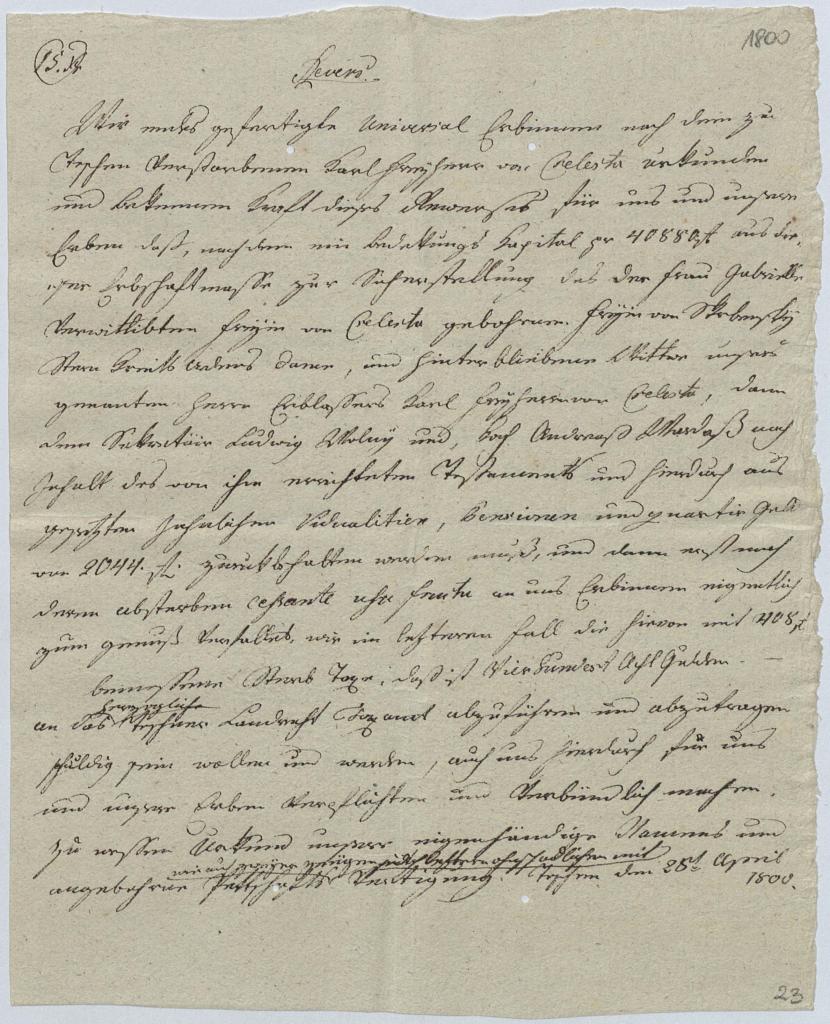 1800
Revers.
Wir endes gefertigte Universal Erbinnen nach dem zu
Teschen Verstorbenen Karl Freyherr von Celesta urkunden
und bekennen Kraft dieses Reverses für uns und unsere
Erben daß, nachdem ein bedekungs Kapital pr 40880 f aus die-
ser Erbschaftmasse zur Sicherstellung des der Frau Gabrielle
Verwittibten Freyin von Celesta gebohrnen Freyin von Skrbensky
Stern Kreutz ordens Dame, und hinterbliebene Wittwe unsers
genanten Herrn Erblassers Karl Freyherrn von Celesta, dann
dem Sekretäir Ludwig Wolny und, Andreas nach
Inhalt des von ihm errichteten Testaments und hierdurch aus
gesetzten Jährlichen Vidualitien, Pensionen und quartir Geld
von 2044 f. zurukbehalten werden muß, und dann erst nach
deren absterben cessante usu fructu an uns Erbinnen eigentlich
zum genuß Verfallet, wir im letzteren Fall die hievon mit 408 f
bemessene Sterb Taxe, daß ist Vierhundert Acht Gulden
herzogliche
an das Teschner Landrecht Taxamt abzuführen und abzutragen
schuldig sein wollen und werden, auch uns hierdurch für uns
und unsere Erben Verpflichten und Verbündlich machen.
Zu wessen Urkund unsere eigenhändige Namens und
angebohrne Pettschafts Fertigung. Teschen den 28t April
1800.
23